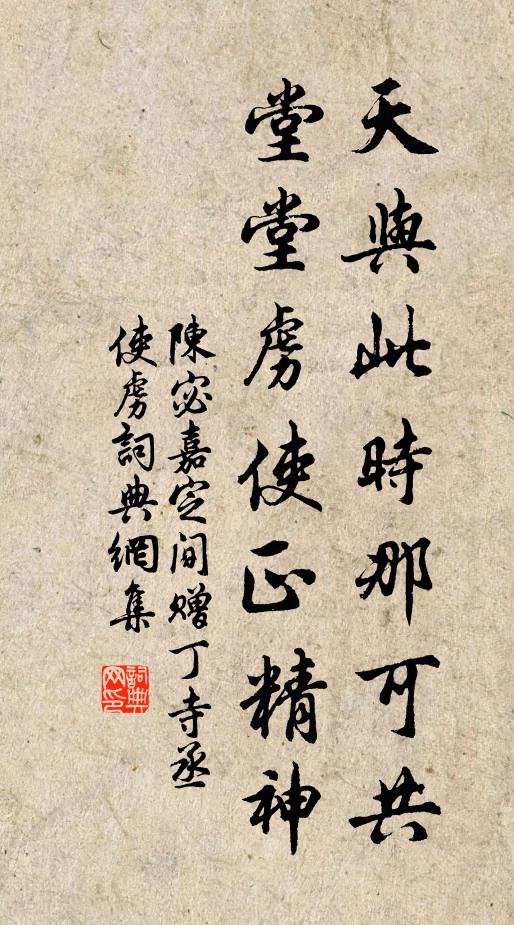 天與此時那可共
堂堂虜使正精神
陳宓嘉定间贈丁寺丞
使虜詞典網集
詞典
网印